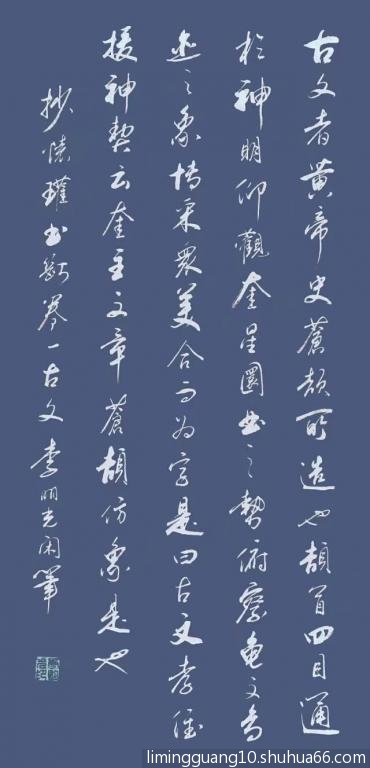 古文者黄帝史蒼頡所造也頡首四目通
於神明仰觀奎星圜曲之勢俯察龜文鳥
迹之象博采眾美合而为字是曰古文孝经
援神契云奎主文章蒼頡仿象是也
抄懷瓘书斷卷一古文李明光闲筆
limingguang10.shuhua66.com